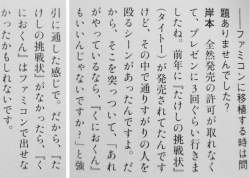 ファミコンに移植する時は問
題ありませんでした?
岸本　全然発売の許可が取れなく
て、プレゼンに3回くらい行きま
したね。前年に『たけしの挑戦状』
(タイトー)が発売されてたんです
けど、その中で通りすがりの人を
殴るシーンがあったんですよ。だ
から、そこを突っついて、「あれ
がやっているなら、『くにおくん』
もいいんじゃないですか?」と強
引に通した感じで。だから、『た
けしの挑戦状』がなかったら、『く
におくん』はファミコンで出せな
かったかもしれないです。